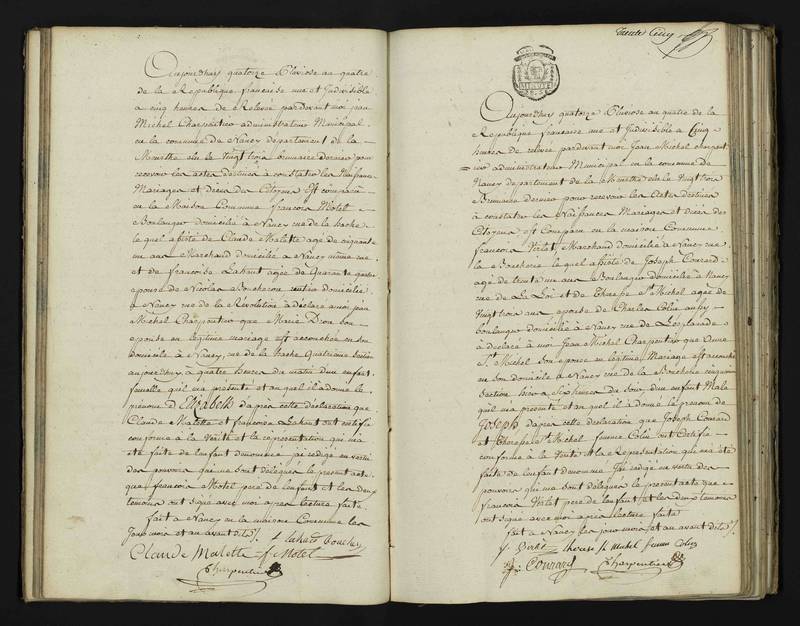 Aujourd'huy quatorze Pluviose an quatre
de la Republique francaise une et Indivisible
a cinq heures de Relevé pardevant moi jean
Michel Charpentier administrateur Municipal
en la commune de Nancy departement de la
Meurthe élu le vingt trois brumaire dernier pour
recevoir les actes destinés a constater les Naissances
Mariages et décès des Citoyens Est comparu
en la Maison Commune françois Motel
Boulanger domicilié a Nancy rue de la hache
lequel assisté de Claude Malotte agé de
un ans Marchand domicilié a Nancy même rue
et de francoise Lahant agée de Quarante quatre
epouse de Nicolas Bocheron rentier domiciliée
a Nancy rue de la Révolution a déclaré a moi jean
Michel Charpentier que Marie Dron son
epouse en legitime mariage est accouchée en son
domicile a Nancy rue de la hache Quatrieme section
aujourd'huy a quatre heures du matin d'un enfant
femelle qu'il m'a présenté et auquel il a donné le
prénom d'Elizabeth d'après cette déclaration que
Claude Malotte et francoise Lahant ont certifié
conforme a la Vérité et la représentation qui m'a
été faite de lenfant denommé j'ai rédigé en vertu
des pouvoirs qui me sont délégués le present acte
que françois Motel pere de lenfant et les deux
temoins ont signé avec moi apres lecture faite
fait a Nancy en la maison Commune les
Jour mois et an avant dits /.
Claude Malotte f Motel
Charpentier
trente Cinq
MINUTE
Aujourd'huy quatorze Pluviose an quatre de la
Republique francaise une et Indivisible a Cinq
heures de relevé pardevant moi Jean Michel
administrateur Municipal en la commune de
Nancy departement de la Meurthe élu le Vingt trois
Brumaire dernier pour recevoir les Actes destinés
a constater les Naissances Mariages et décès des
Citoyens est Comparu en la maison Commune
francois Virlet Marchand domicilié a Nancy rue
la Boucherie lequel assisté de Joseph Conrard
agé de trente un ans Boulanger domicilié a Nancy
rue de La Loi et de Therese St Michel agée de
Vingt trois ans epouse de Charles Colin aussy
boulanger domicilié a Nancy rue de L'esplanade
a déclaré a moi Jean Michel Charpentier que Anne
St Michel son epouse en legitime Mariage est accouchée
en son domicile a Nancy rue de la Boucherie cinquieme
section hier a six heures du soir d'un enfant Male
quil ma presenté et auquel il a donné le prenom de
Joseph dapres cette declaration que Joseph Conrard
et Therese St Michel femme Colin ont Certifié
conforme a la Verité et la Représentation qui ma été
faite de lenfant denommé J'ai rédigé en vertu des
pouvoirs qui me sont délégués le present acte que
francois Virlet pere de lenfant et les deux temoins
ont signé avec moi après lecture faite
fait a Nancy les jour mois et an avant dits /.
f. Virlet therese st michel femme Colin
Conrard Charpentier